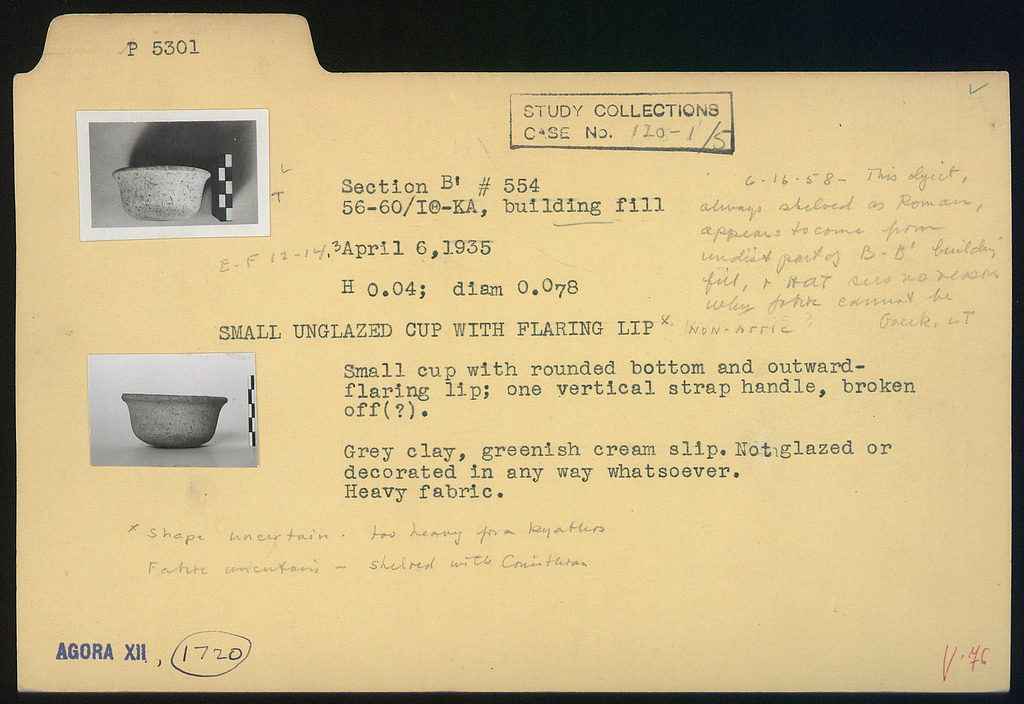 P 5301
STUDY COLLECTIONS
CASE No. 120-1/5
L
T
Section B' # 554
56-60/IΘ-KA, building fill
E-F 12-14.3
April 6,1935
H 0.04; diam 0.078
6-16-58- This object,
always shelved as Roman,
appears to come from
undist part of B-B' building
fill, + HAT sees no reason
why fabric cannot be
Greek. LT
SMALL UNGLAZED CUP WITH FLARING LIP x. NON-ATTIC ?
Small cup with rounded bottom and outward-
flaring lip; one vertical strap handle, broken
off(?).
Grey clay, greenish cream slip. Not glazed or
decorated in any way whatsoever.
Heavy fabric.
x Shape uncertain. too heavy for a kyathos
Fabric uncertain - shelved with Corinthian
AGORA XII, 1720
V.76